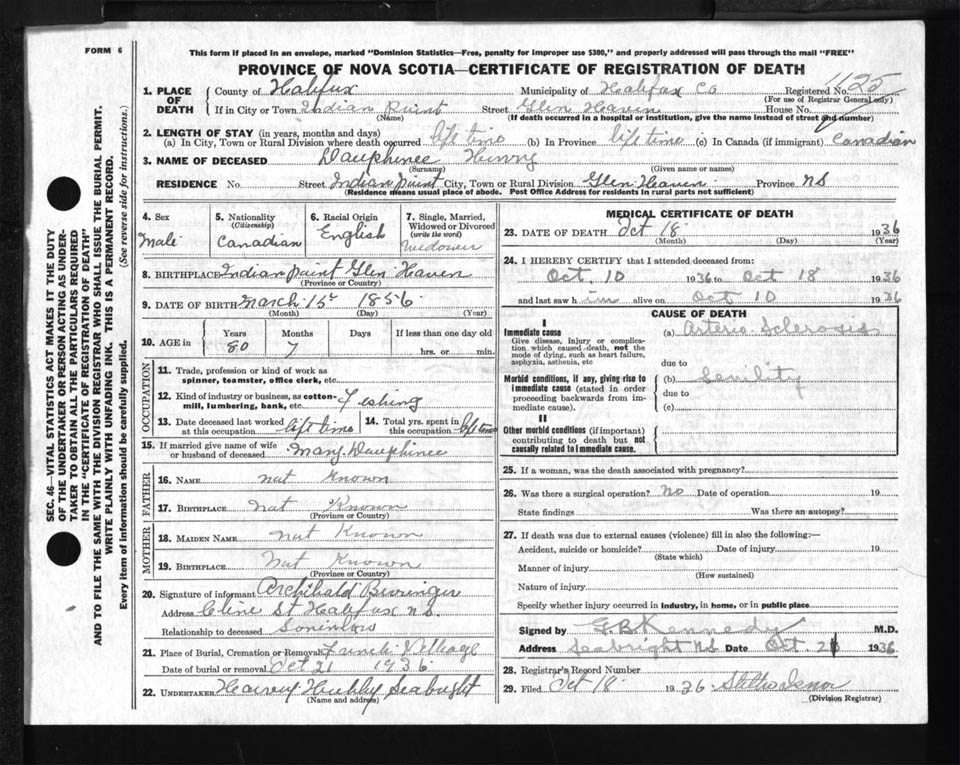 FORM 6
This form if placed in an envelope, marked "Dominion Statistics—Free, penalty for improper use $300," and properly addressed will pass through the mail "FREE"
PROVINCE OF NOVA SCOTIA—CERTIFICATE OF REGISTRATION OF DEATH
1. PLACE OF DEATH
County of Halifax Municipality of Halifax Co Registered No. 1125
(For use of Registrar General only)
If in City or Town Indian Point Street Glen Heaven House No.
(Name) (If death occurred in a hospital or institution, give the name instead of street and number)
2. LENGTH OF STAY (in years, months and days)
(a) In City, Town or Rural Division where death occurred life time (b) In Province life time (c) In Canada (if immigrant) Canadian
3. NAME OF DECEASED Dauphinee Henry
(Surname) (Given name or names)
RESIDENCE No. Street Indian Point City, Town or Rural Division Glen Heaven Province NS
(Residence means usual place of abode. Post Office Address for residents in rural parts not sufficient)
4. Sex Male
5. Nationality (Citizenship) Canadian
6. Racial Origin English
7. Single, Married, Widowed or Divorced (write the word) Widower
8. BIRTHPLACE Indian Point Glen Haven
(Province or Country)
9. DATE OF BIRTH March 15 1856
(Month) (Day) (Year)
10. AGE in Years 80 Months 7 Days If less than one day old hrs. or min.
OCCUPATION
11. Trade, profession or kind of work as spinner, teamster, office clerk, etc.
12. Kind of industry or business, as cotton-mill, lumbering, bank, etc. Fishing
13. Date deceased last worked at this occupation life time
14. Total yrs. spent in this occupation life time
15. If married give name of wife or husband of deceased Mary Dauphinee
FATHER
16. NAME not Known
17. BIRTHPLACE Not Known
(Province or Country)
MOTHER
18. MAIDEN NAME not Known
19. BIRTHPLACE Not Known
(Province or Country)
20. Signature of informant Archibald
Address St Halifax NS.
Relationship to deceased Soninlaw
21. Place of Burial, Cremation or Removal French Village
Date of burial or removal Oct 21 1936
22. UNDERTAKER Harvey Hubley Seabright
(Name and address)
MEDICAL CERTIFICATE OF DEATH
23. DATE OF DEATH Oct 18 1936
(Month) (Day) (Year)
24. I HEREBY CERTIFY that I attended deceased from:
Oct. 10 1936 to Oct 18 1936
and last saw h im alive on Oct 10 1936
CAUSE OF DEATH
I
Immediate cause (a) Arterio Sclerosis
Give disease, injury or complication which caused death, not the mode of dying, such as heart failure, asphyxia, asthenia, etc
due to
Morbid conditions, if any, giving rise to immediate cause (stated in order proceeding backwards from immediate cause).
(b) Senility
due to
(c)
II
Other morbid conditions (if important) contributing to death but not causally related to immediate cause.
25. If a woman, was the death associated with pregnancy?
26. Was there a surgical operation? No Date of operation 19
State findings Was there an autopsy?
27. If death was due to external causes (violence) fill in also the following:—
Accident, suicide or homicide? Date of injury 19
(State which)
Manner of injury
(How sustained)
Nature of injury
Specify whether injury occurred in industry, in home, or in public place
Signed by G.B Kennedy M.D.
Address Seabright NS. Date Oct. 21 1936
28. Registrar's Record Number
29. Filed Oct 18 1936
(Division Registrar)
SEC. 46—VITAL STATISTICS ACT MAKES IT THE DUTY
OF THE UNDERTAKER OR PERSON ACTING AS UNDER-
TAKER TO OBTAIN ALL THE PARTICULARS REQUIRED
IN THE "CERTIFICATE OF REGISTRATION OF DEATH"
AND TO FILE THE SAME WITH THE DIVISION REGISTRAR WHO SHALL ISSUE THE BURIAL PERMIT.
WRITE PLAINLY WITH UNFADING INK. THIS IS A PERMANENT RECORD.
Every item of information should be carefully supplied. (See reverse side for instructions.)